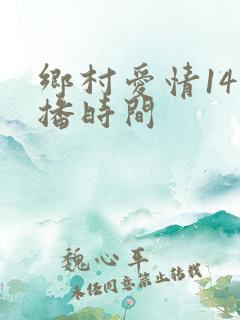 鄉村愛情14
播時間
魏心平
未经同意禁止转载